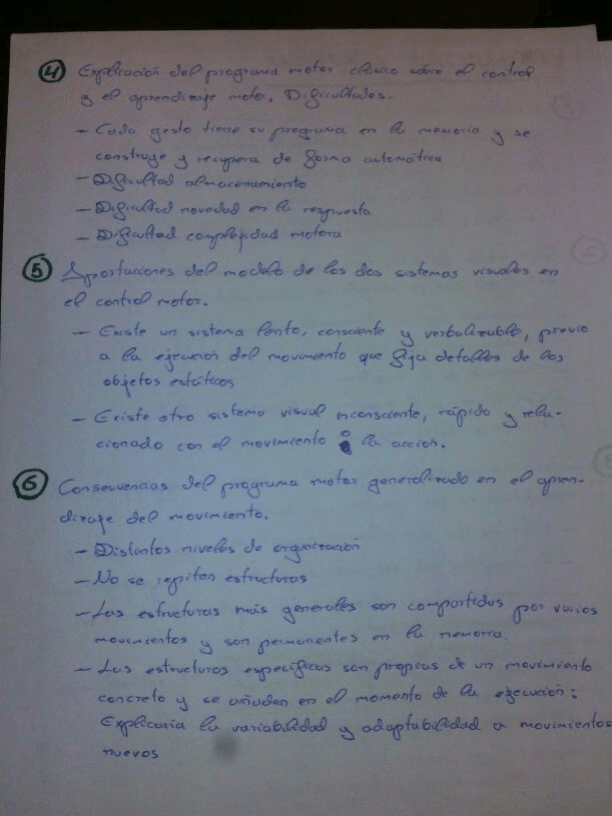 4 Explicación del programa motor clásico sobre el control
y el aprendizaje motor. Dificultades.
- Cada gesto tiene su programa en la memoria y se
construye y recupera de forma automática
- Dificultad almacenamiento
- Dificultad novedad en la respuesta
- Dificultad complejidad motora
5 Aportaciones del modelo de los dos sistemas visuales en
el control motor.
- Existe un sistema lento, consciente y verbalizable, previo
a la ejecución del movimiento que fija detalles de los
objetos estáticos
- Existe otro sistema visual inconsciente, rápido y rela-
cionado con el movimiento o la acción.
6 Consecuencias del programa motor generalizado en el apren-
dizaje del movimiento.
- Distintos niveles de organización
- No se repiten estructuras
- Las estructuras más generales son compartidas por varios
movimientos y son permanentes en la memoria.
- Las estructuras específicas son propias de un movimiento
concreto y se añaden en el momento de la ejecución:
Explicaría la variabilidad y adaptabilidad a movimientos
nuevos